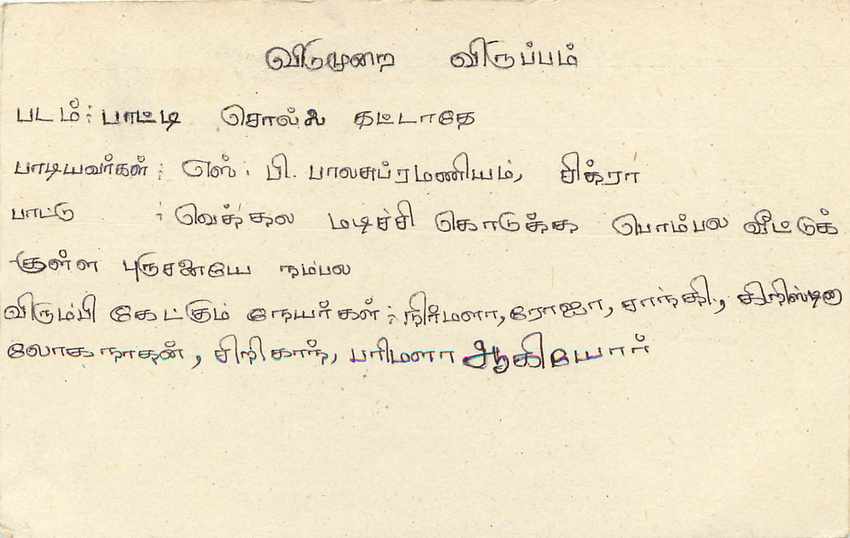 விடுமுறை விருப்பம்
படம்: பாட்டி சொல்ல தட்டாதே
பாடியவர்கள்: எஸ். பி. பாலசுப்ரமணியம், சித்ரா
பாட்டு : வெத்தல மடிச்சி கொடுத்த பொம்பல வீட்டுக்
குள்ள புருசனயே நம்பல
விரும்பி கேட்கும் நேயர்கள்: நிர்மளா, ரோஜா, சாந்தி, கிறிஸ்டி
லோகநாதன், சிறிகாந், பரிமளா ஆகியோர்